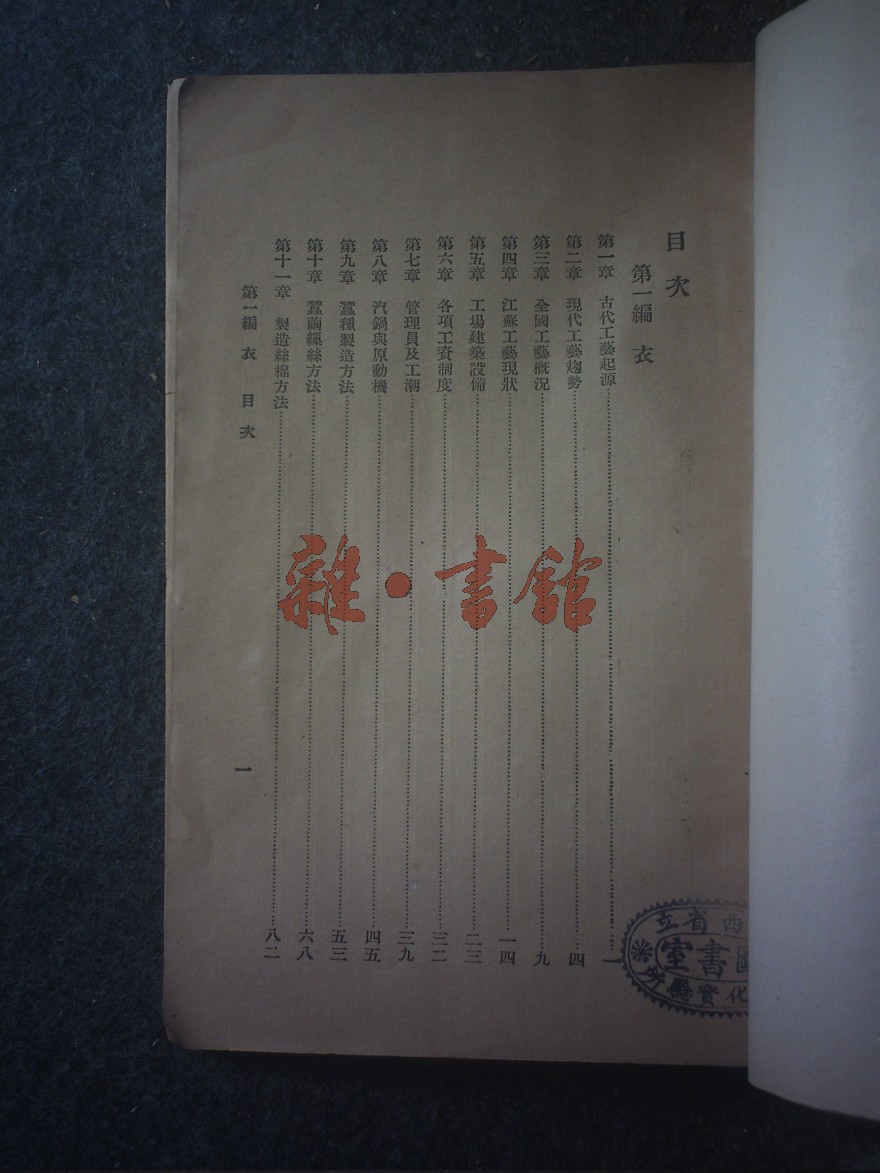 目次
第一編 衣
第一章 古代工藝起源……一
第二章 現代工藝趨勢……四
第三章 全國工藝概況……九
第四章 江蘇工藝現狀……一四
第五章 工場建築設備……二三
第六章 各項工資制度……三二
第七章 管理員及工潮……三九
第八章 汽鍋與原動機……四五
第九章 蠶種製造方法……五三
第十章 蠶繭繅絲方法……六八
第十一章 製造絲棉方法……八二
第一編 衣 目次
一
雜·書館
西省立
圖書室
化實驗